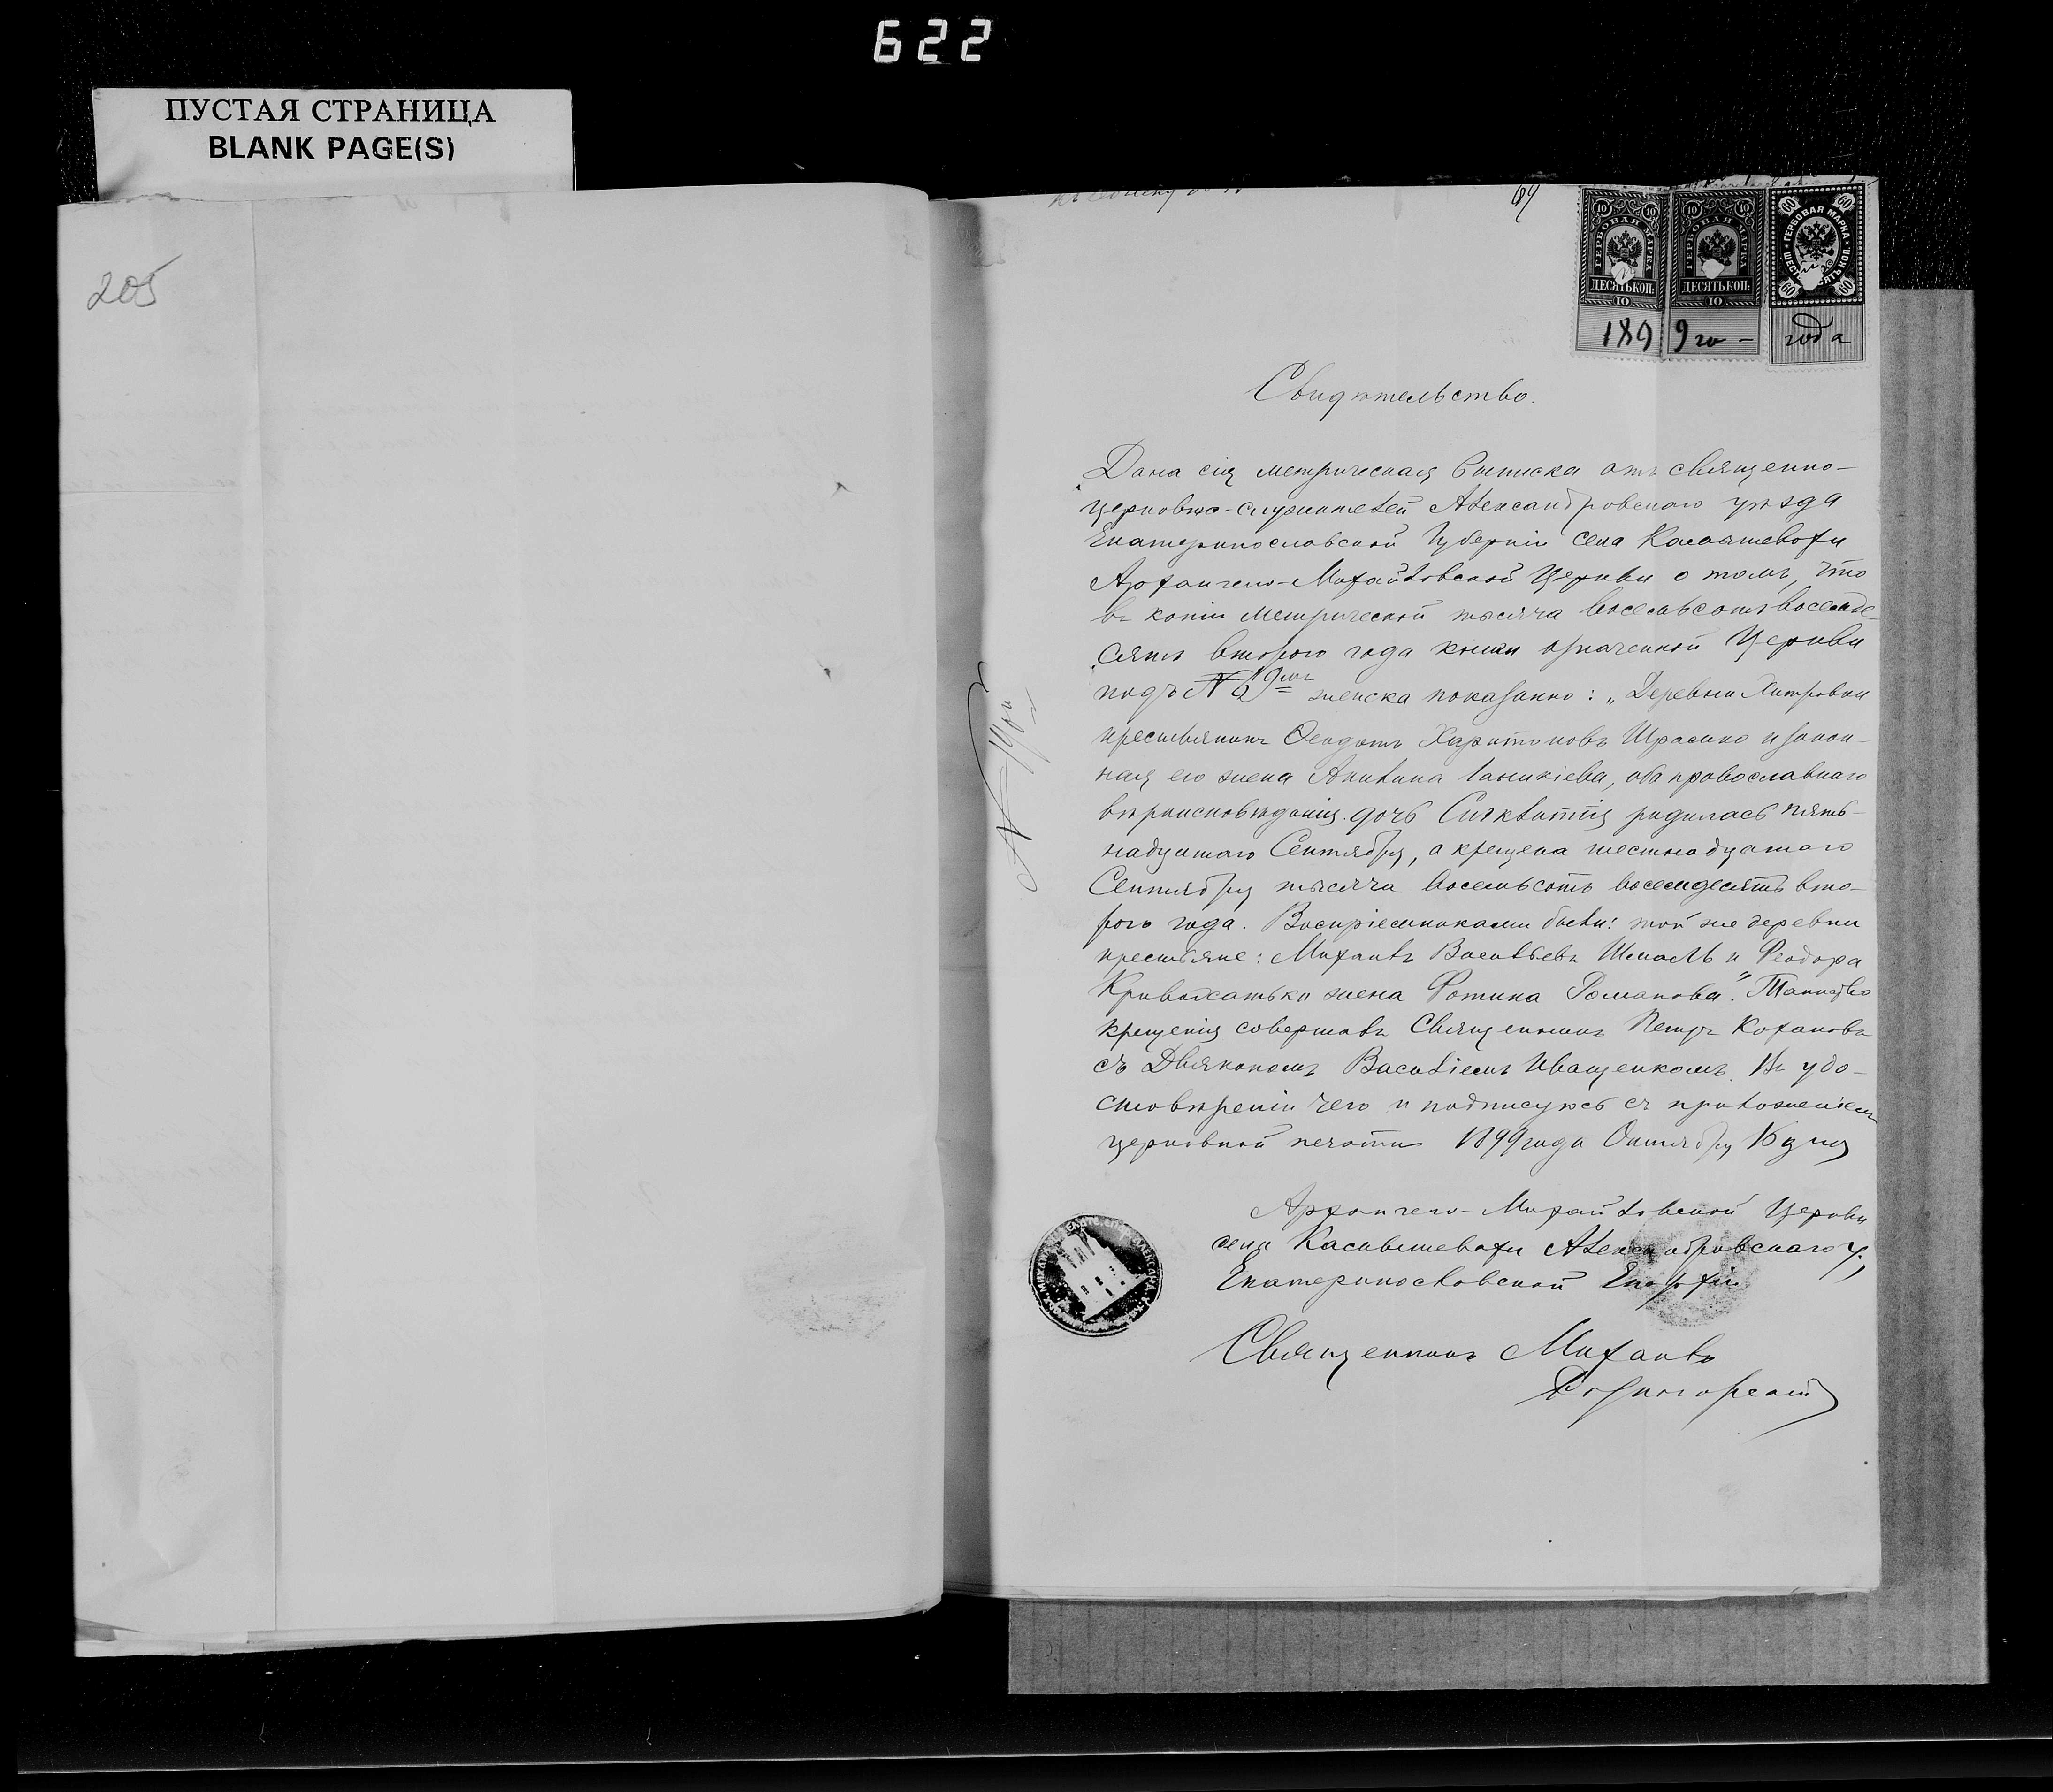 622
ПУСТАЯ СТРАНИЦА
BLANK PAGE(S)
205
10 10 10 10 60 60
ГЕРБОВАЯ МАРКА ГЕРБОВАЯ МАРКА ГЕРБОВАЯ МАРКА
ДЕСЯТЬ КОП. ДЕСЯТЬ КОП. 60 60
10 10
189 9 го - года
Свидѣтельство.
Дана сія метрическая выписка отъ священно-
церковно-служителей Александровскаго уѣзда
Екатеринославской Губерніи села
Архангело-Михайловской Церкви о томъ, что
въ копіи метрической тысяча восемьсотъ восемьде-
сятъ второго года книги означенной Церкви
подъ № женска показанно: „Деревни Хитровки
крестьянинъ Ѳеодотъ Харитоновъ и закон-
ная его жена Акилина, оба православнаго
вѣроисповѣданія дочь родилась пять-
надцатаго Сентября, а крещена шестнадцатаго
Сентября тысяча восемьсотъ восемдесятъ вто-
рого года. Воспріемниками были: той же деревни
крестьяне: Михаилъ Васильевъ и Ѳеодора
жена Фотина Романова". Таинство
крещенія совершалъ Священникъ Петръ Кохановъ
съ Дьякономъ Василіемъ Иващенкомъ. Въ удо-
стовѣреніи чего и подписуюсь съ приложеніемъ
церковной печати 1899 года Октября 16 дня
Архангело-Михайловской Церкви
села Александровскаго у.,
Екатеринославской Епархіи
Священникъ Михаилъ